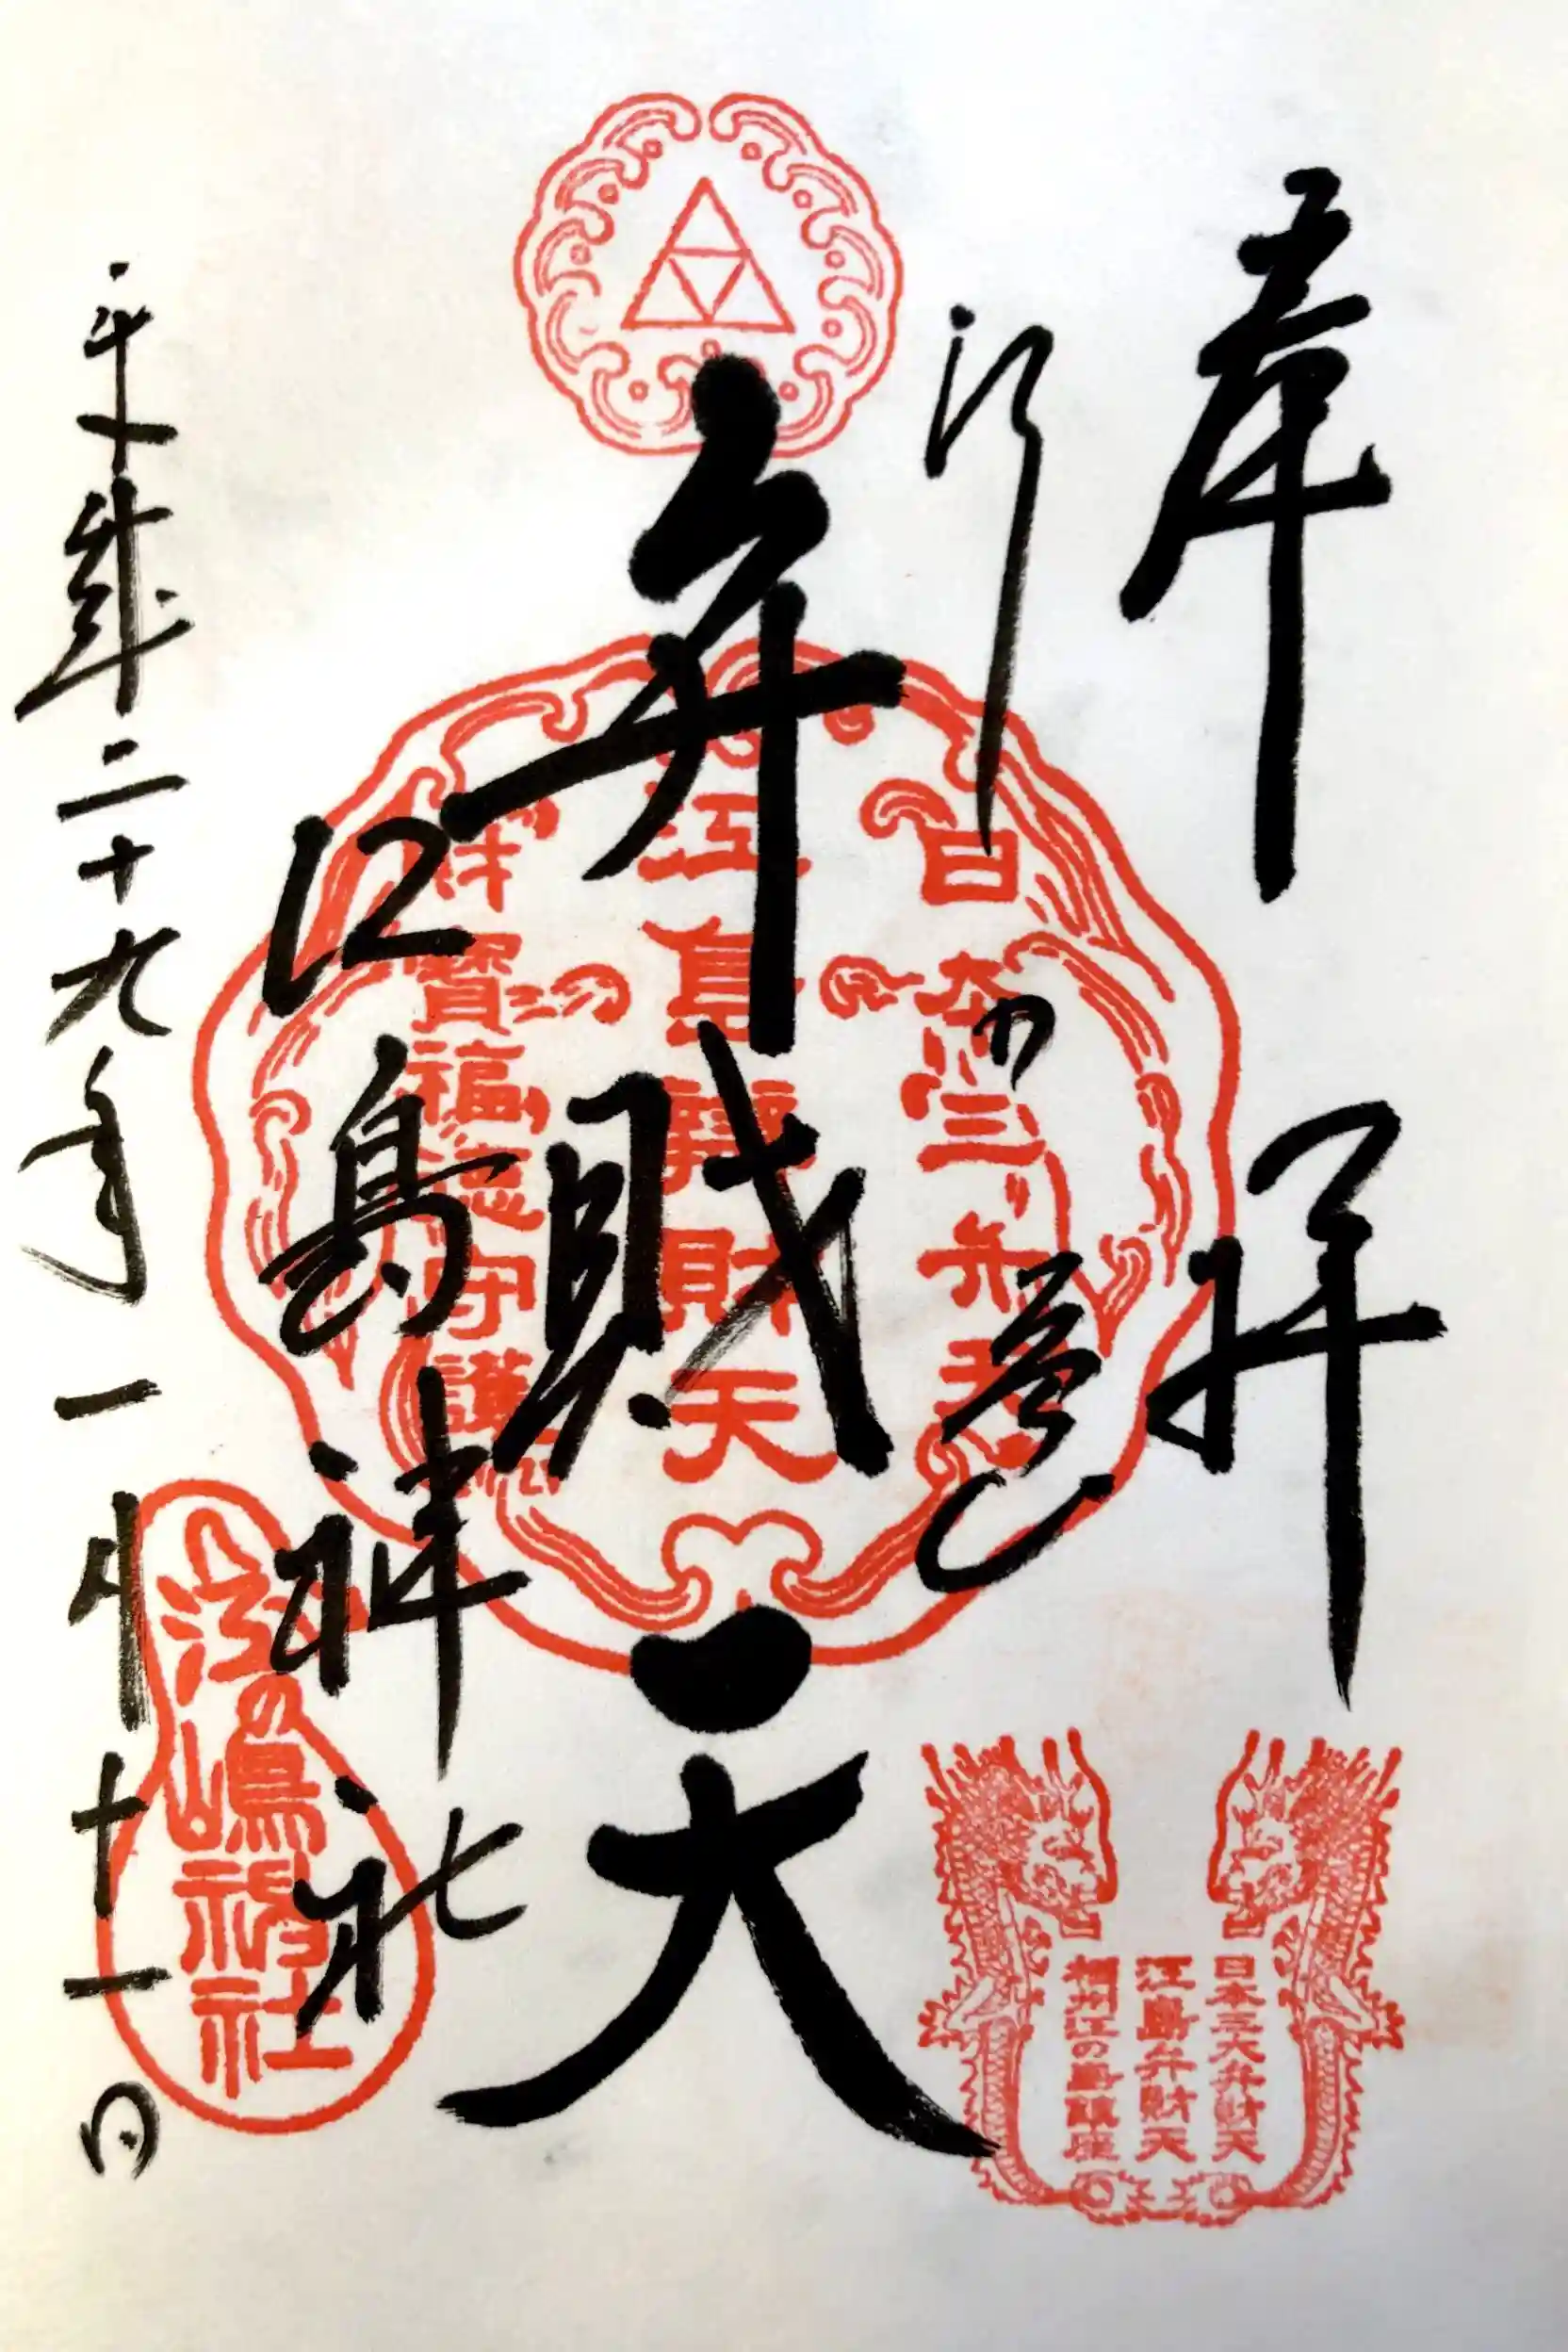 奉拝
江の島
弁財天
江島神社
平成二十九年一月十一日
日本三弁天
江島辨財天
財寳福徳守護
日本三大弁財天
江島弁財天
相州江の島鎮座
江の嶋神社